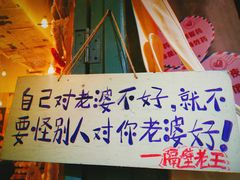 自己对老婆不好,就不
要怪别人对你老婆好!
一隔壁老王